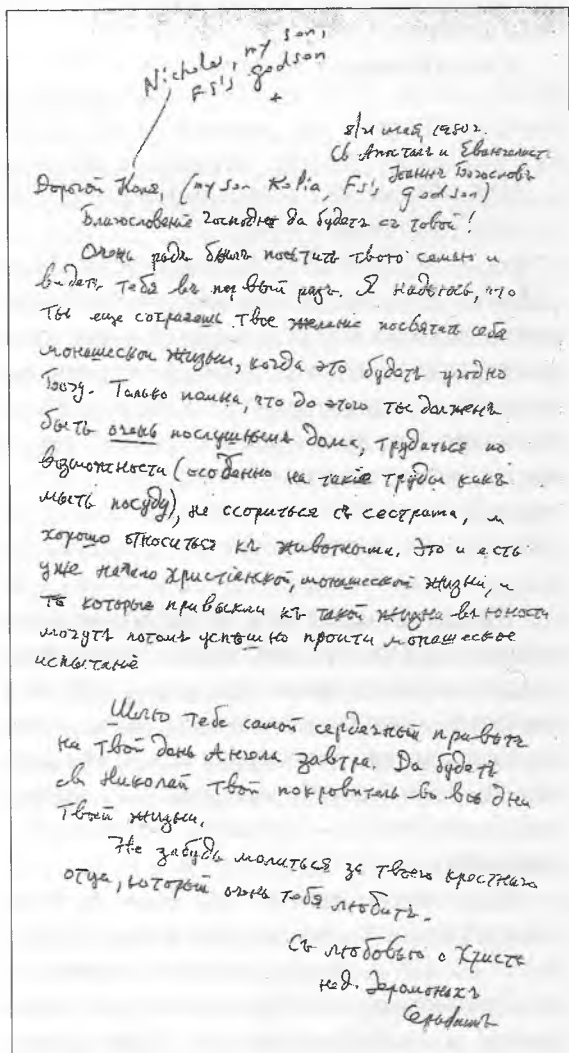 Nicholas, my son,
FS's godson
+
8/21 май, 1980 г.
Св Апостолъ и Евангелистъ
Іоаннъ Богословъ
Дорогой Коля, (my son Kolia, FS's godson)
Благословение Господне да будетъ съ тобой!
Очень радъ былъ посѣтить твою семью и
видеть тебя въ первый разъ. Я надеюсь, что
ты еще сохраняешь твое желание посвятить себя
монашеской жизни, когда это будетъ угодно
Богу. Только помни, что до этого ты долженъ
быть очень послушнымъ дома, трудиться по
возможности (особенно на такіе труды какъ
мыть посуду), не ссориться съ сестрами, и
хорошо относиться къ животнымъ. Это и есть
уже начало христіанской, монашеской жизни, и
тѣ которые привыкли къ такой жизни въ юности
могутъ потомъ успѣшно пройти монашеское
испытаніе
Шлю тебе самой сердечный привѣтъ
на твой день Ангела завтра. Да будетъ
св Николай твой покровитель во все дни
твоей жизни.
Не забудь молиться за твоего крестнаго
отца, который очень тебя любитъ.
Съ любовью о Христе
нед. Іеромонахъ
Серафимъ